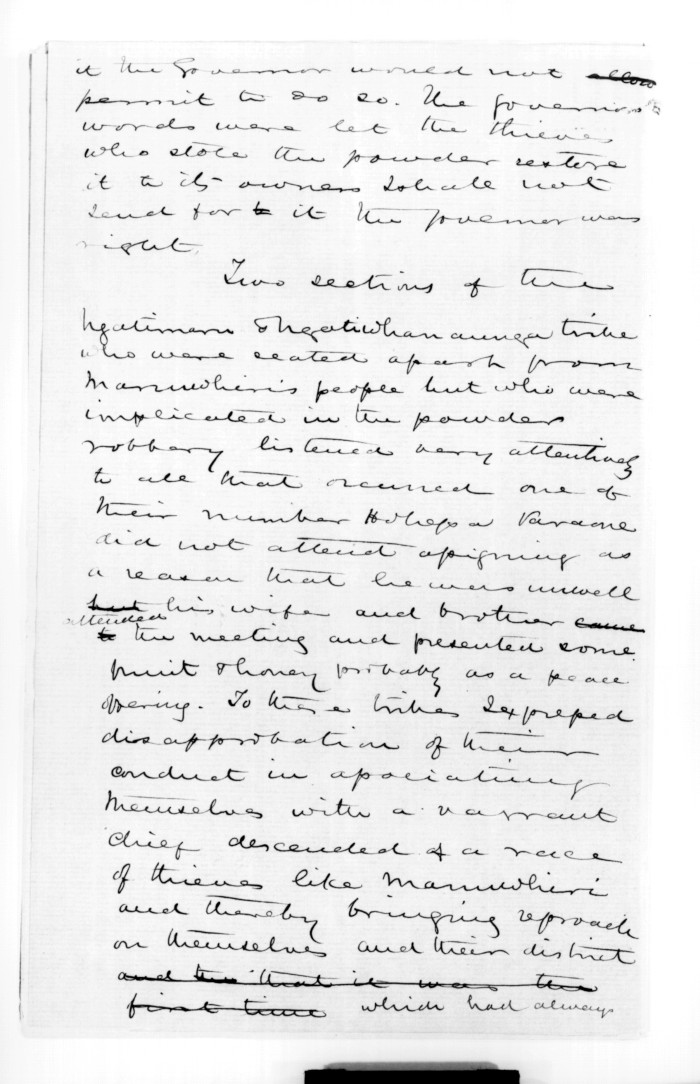 it the Governor would not allow
permit to do so. The Governors
words were let the thieves
who stole the powder restore
it to its owners I shall not
send for to it the Governor was
right.
Two sections of the
Ngatimaru & Ngatiwhanaunga tribe
who were seated apart from
Maruwheri's people but who were
implicated in the powder
robbery listened very attentively
to all that occurred one of
their number Paraone
did not attend assigning as
a reason that he was unwell
but his wife and brother came
attended
to the meeting and presented some
fruit & honey probably as a peace
offering. To these tribes I expressed
disapprobation of their
conduct in associating
themselves with a vagrant
chief descended of a race
of thieves like Maruwheri
and thereby bringing reproach
on themselves and their district
and the that it was the
first time which had always